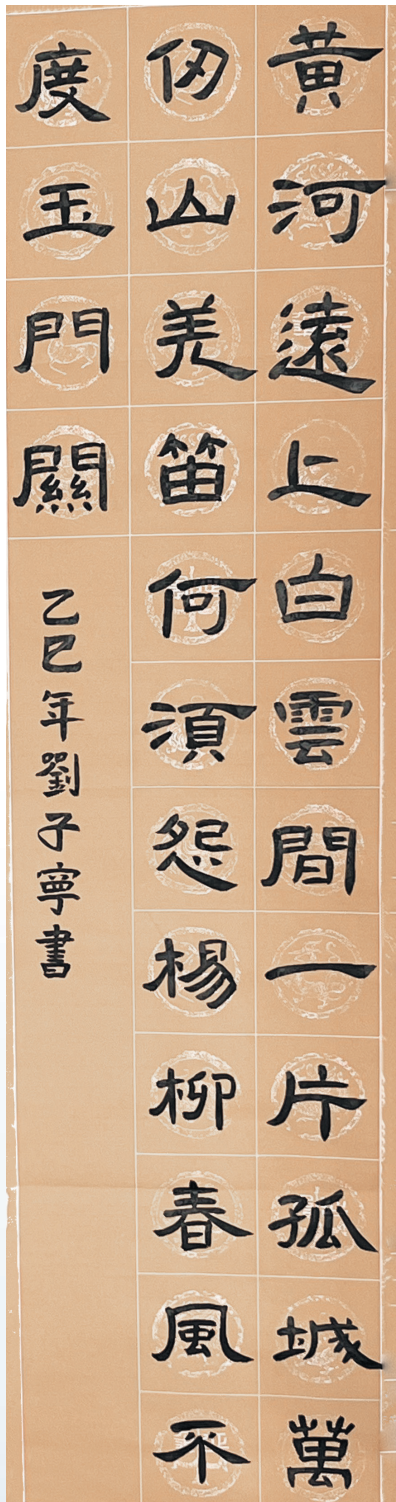 黃河遠上白雲間一片孤城萬
仞山羌笛何須怨楊柳春風不
度玉門關
乙巳年劉子寧書